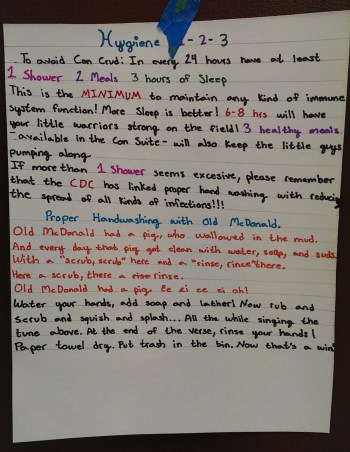 Hygiene 1-2-3
To avoid Con Crud: In every 24 hours have at least
1 Shower 2 Meals 3 hours of Sleep
This is the MINIMUM to maintain any kind of immune
system function! More Sleep is better! 6-8 hrs will have
your little warriors strong on the field! 3 healthy meals
-available in the Con Suite- will also keep the little guys
pumping along
If more than 1 Shower seems excesive, please remember
that the CDC has linked proper hand washing with reducing
the spread of all kinds of infections!!!
Proper Handwashing with Old McDonald.
Old McDonald had a pig, who wallowed in the mud.
And every day that pig got clean with water, soap, and suds.
With a "scrub, scrub" here and a "rinse, rince" there.
Here a scrub, there a rinse.
Old McDonald had a pig. Ee ei ee ei oh!
Water your hands, add soap and lather! Now rub and
scrub and squish and splash... All the while singing the
tune above. At the end of the verse, rinse your hands!
Paper towel dry. Put trash in the bin. Now that's a win!